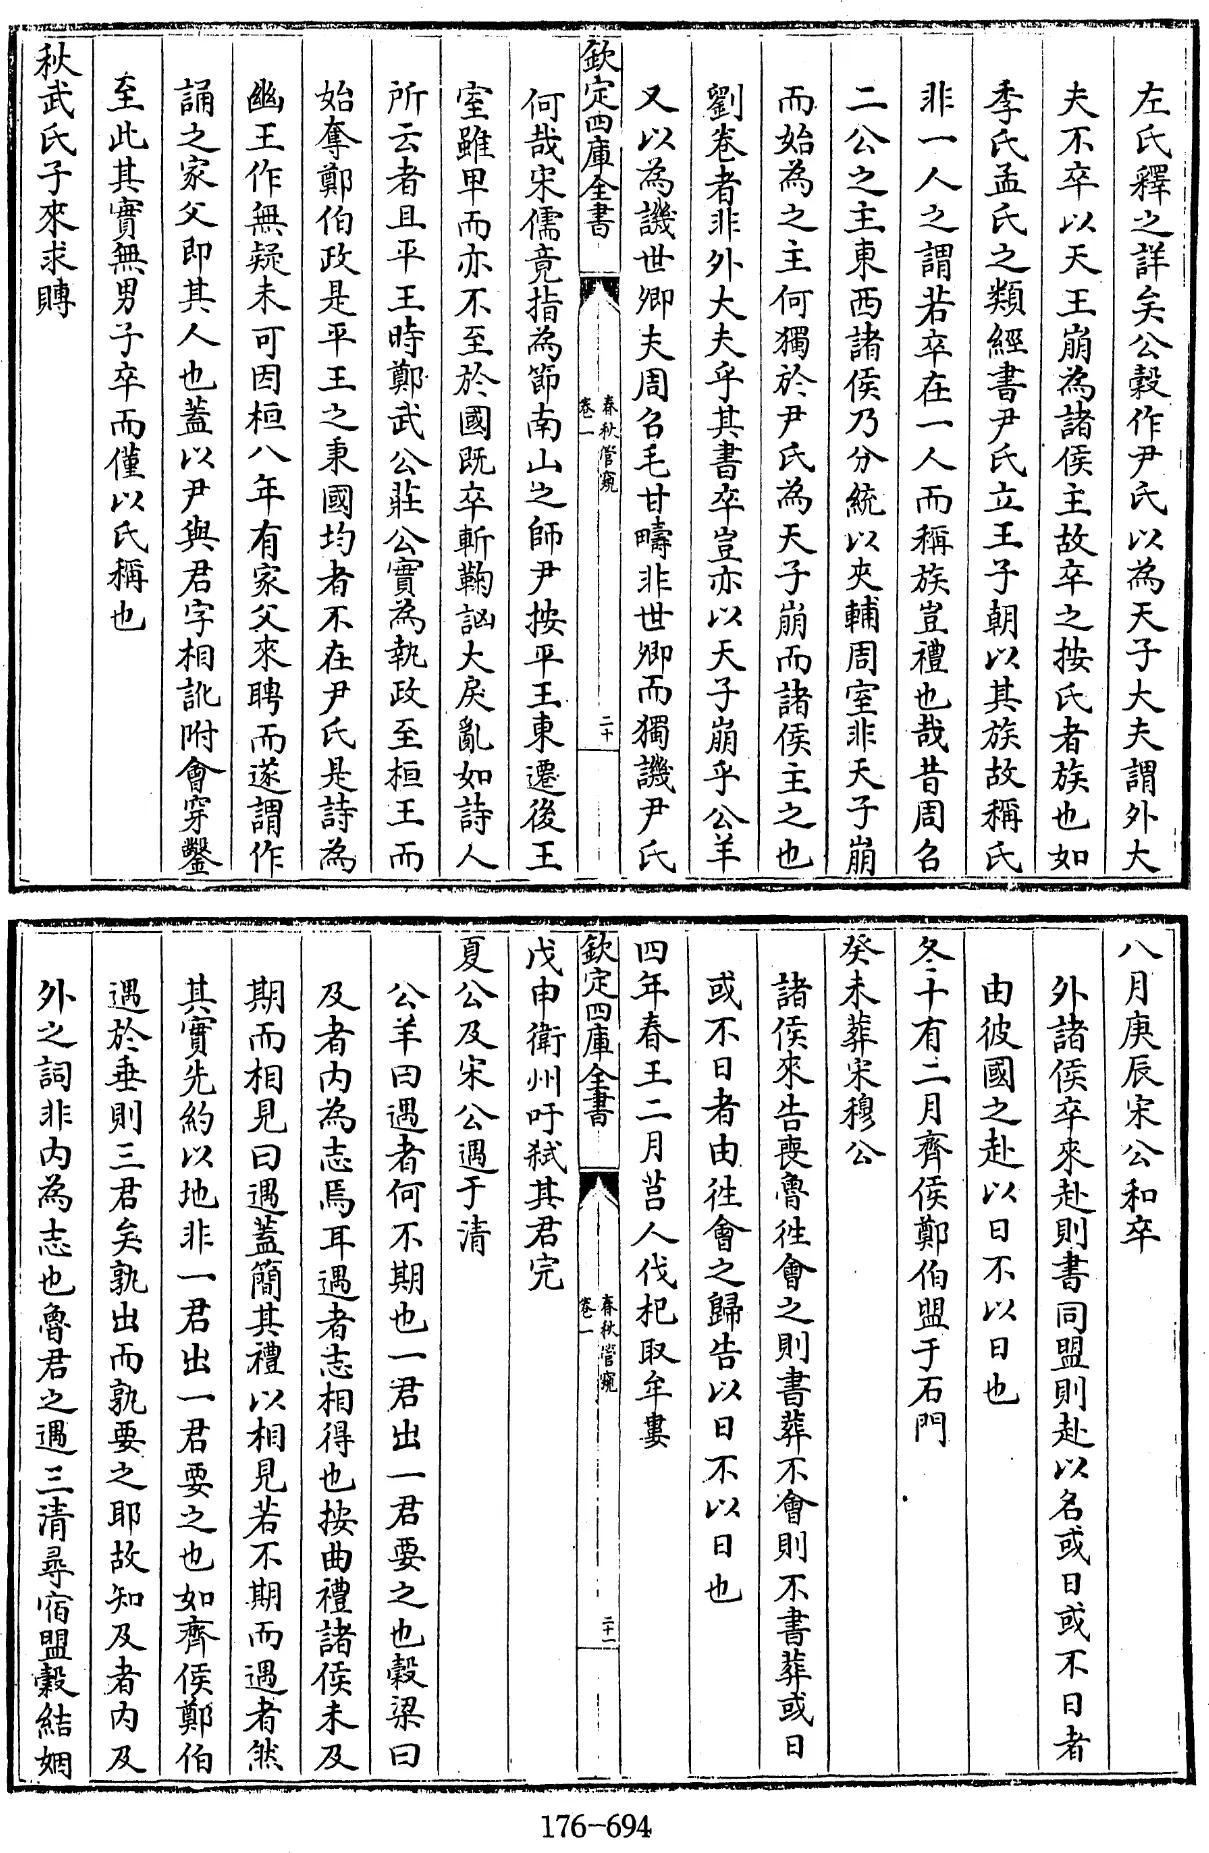 左氏釋之詳矣公穀作尹氏以為天子大夫謂外大
夫不卒以天王崩為諸侯主故卒之按氏者族也如
季氏孟氏之類經書尹氏立王子朝以其族故稱氏
非一人之謂若卒在一人而稱族豈禮也哉昔周召
二公之主東西諸侯乃分統以夾輔周室非天子崩
而始為之主何獨於尹氏為天子崩而諸侯主之也
劉卷者非外大夫乎其書卒豈亦以天子崩乎公羊
又以為譏世卿夫周召毛甘疇非世卿而獨譏尹氏
欽定四庫全書
春秋管窺
卷一
二十
何哉宋儒竟指為節南山之師尹按平王東遷後王
室雖卑而亦不至於國既卒斬鞠訩大戾亂如詩人
所云者且平王時鄭武公莊公實為執政至桓王而
始奪鄭伯政是平王之秉國均者不在尹氏是詩為
幽王作無疑未可因桓八年有家父來聘而遂謂作
誦之家父即其人也蓋以尹與君字相訛附會穿鑿
至此其實無男子卒而僅以氏稱也
秋武氏子來求賻
八月庚辰宋公和卒
外諸侯卒來赴則書同盟則赴以名或日或不日者
由彼國之赴以日不以日也
冬十有二月齊侯鄭伯盟于石門
癸未葬宋穆公
諸侯來告喪魯往會之則書葬不會則不書葬或日
或不日者由往會之歸告以日不以日也
四年春王二月莒人伐杞取牟婁
欽定四庫全書
春秋管窺
卷一
二十一
戊申衛州吁弑其君完
夏公及宋公遇于清
公羊曰遇者何不期也一君出一君要之也穀梁曰
及者內為志焉耳遇者志相得也按曲禮諸侯未及
期而相見曰遇蓋簡其禮以相見若不期而遇者然
其實先約以地非一君出一君要之也如齊侯鄭伯
遇於垂則三君矣孰出而孰要之耶故知及者內及
外之詞非內為志也魯君之遇三清尋宿盟穀結姻
176-694